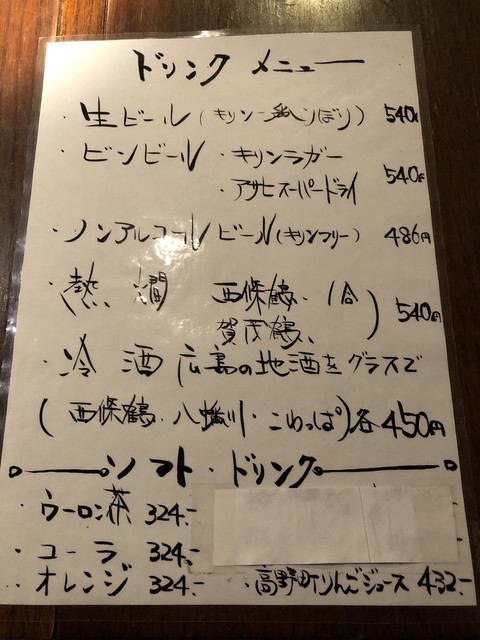 ドリンク メニュー
・生ビール(キリン一番しぼり) 540円
・ビンビール ・キリンラガー
・アサヒスーパードライ 540円
・ノンアルコールビール(キリンフリー) 486円
・(熱燗 西條鶴、1合
賀茂鶴、) 540円
・冷酒 広島の地酒をグラスで
(西條鶴・八幡川・こわっぱ)各450円
ソフト・ドリンク
・ウーロン茶 324.-
・コーラ 324.-
・オレンジ 324.- ・高野町りんごジュース 432.-